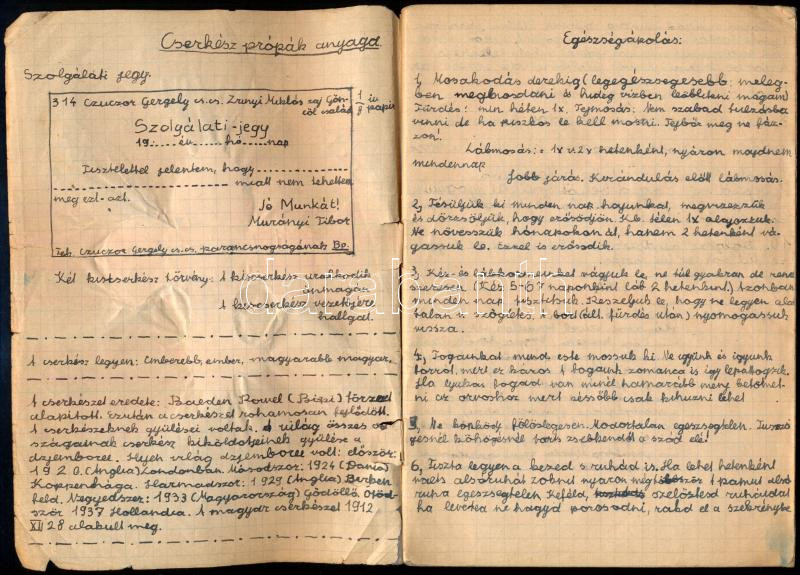 Cserkész própák anyaga.
Szolgálati jegy.
314 Czuczor Gergely cs.cs. Zrinyi Miklós raj Gön-
cöl család
1/8 ív papir
Szolgálati-jegy
19.....év.....hó.....nap
Tisztelettel jelentem, hogy
miatt nem tehettem
meg ezt-azt.
Jó Munkát!
Murányi Tibor
Tek. Czuczor Gergely cs.cs. parancsnogságának Bp.
Két kiscserkész törvény: 1 kiscserkész uralkodik
önmagán.
1 kiscserkész vezetőjére
hallgat.
1 cserkész legyen: Emberebb, ember, magyarabb magyar.
1 cserkészet eredete: Baeden Powel (Bipi)
alapitott. Ezután a cserkészet rohamosan fejlődött.
1 cserkészeknek gyülései voltak. A világ összes or-
szágainak cserkész kiküldötjeinek gyülése a
dzjemboree. Ilyen világ dzjemboree volt: először:
1920. (Anglia) Londonban. Másodszor: 1924 (Dánia)
Koppenhága. Harmadszor: 1929 (Anglia) Birken
feld. Negyedszer: 1933 (Magyarország) Gödöllő. Ötöd-
ször 1937 Hollandia. A magyar cserkészet 1912
XII 28 alakult meg.
Egészségápolás:
1, Mosakodás derékig (legegészségesebb: meleg-
ben megmosdani és hideg vizben leöbliteni magam)
Fürdés: min héten 1x. Fejmosás: Nem szabad túlzásba
vinni de ha piszkos le kell mosni. Fejbőr meg ne fáz-
zon!
Lábmosás: 1x v. 2x hetenként, nyáron majdnem
mindennap
Jobb járás. Kirándulás előtt lábmosás.
2, Fésüljük ki minden nap hajunkat, megnézzük
és dörzsöljük, hogy erősödjön. Kb. télen 1x
Ne növesszük hónapokon át, hanem 2 hetenként vá-
gassuk le. Ezzel is erősödik.
3, Kéz- és lábkörmeinket vágjuk le, ne túl gyakran de rend
szeresen (Kéz 5-6-7 naponként láb 2 hetenként.) Azonban
minden nap tisztitsuk. Reszeljük le, hogy ne legyen ál-
talán se szögletes. A bőrt (ált. fürdés után) nyomogassuk
vissza.
4, Fogainkat mind este mossuk ki. Ne együnk és igyunk
forrót, mert ez káros 1 fogaink zománca is igy lepattogzik.
Ha lyukas fogad van minél hamarább menj betömet-
ni az orvoshoz mert később csak kihuzni lehet.
5, Ne köpködj fölöslegesen. Modortalan egészségtelen. Tüsszö-
gésnél köhögésnél tarts zsebkendőt a szád elé!
6, Tiszta legyen a kezed s ruhád is. Ha lehet hetenként
válts alsóruhát zokni nyáron 1 pamut alsó
ruha egészségtelen. Keféld, szellőztesd ruháidat
ha leveted ne hagyd porosodni, rakd el a szekrénybe
darabanth